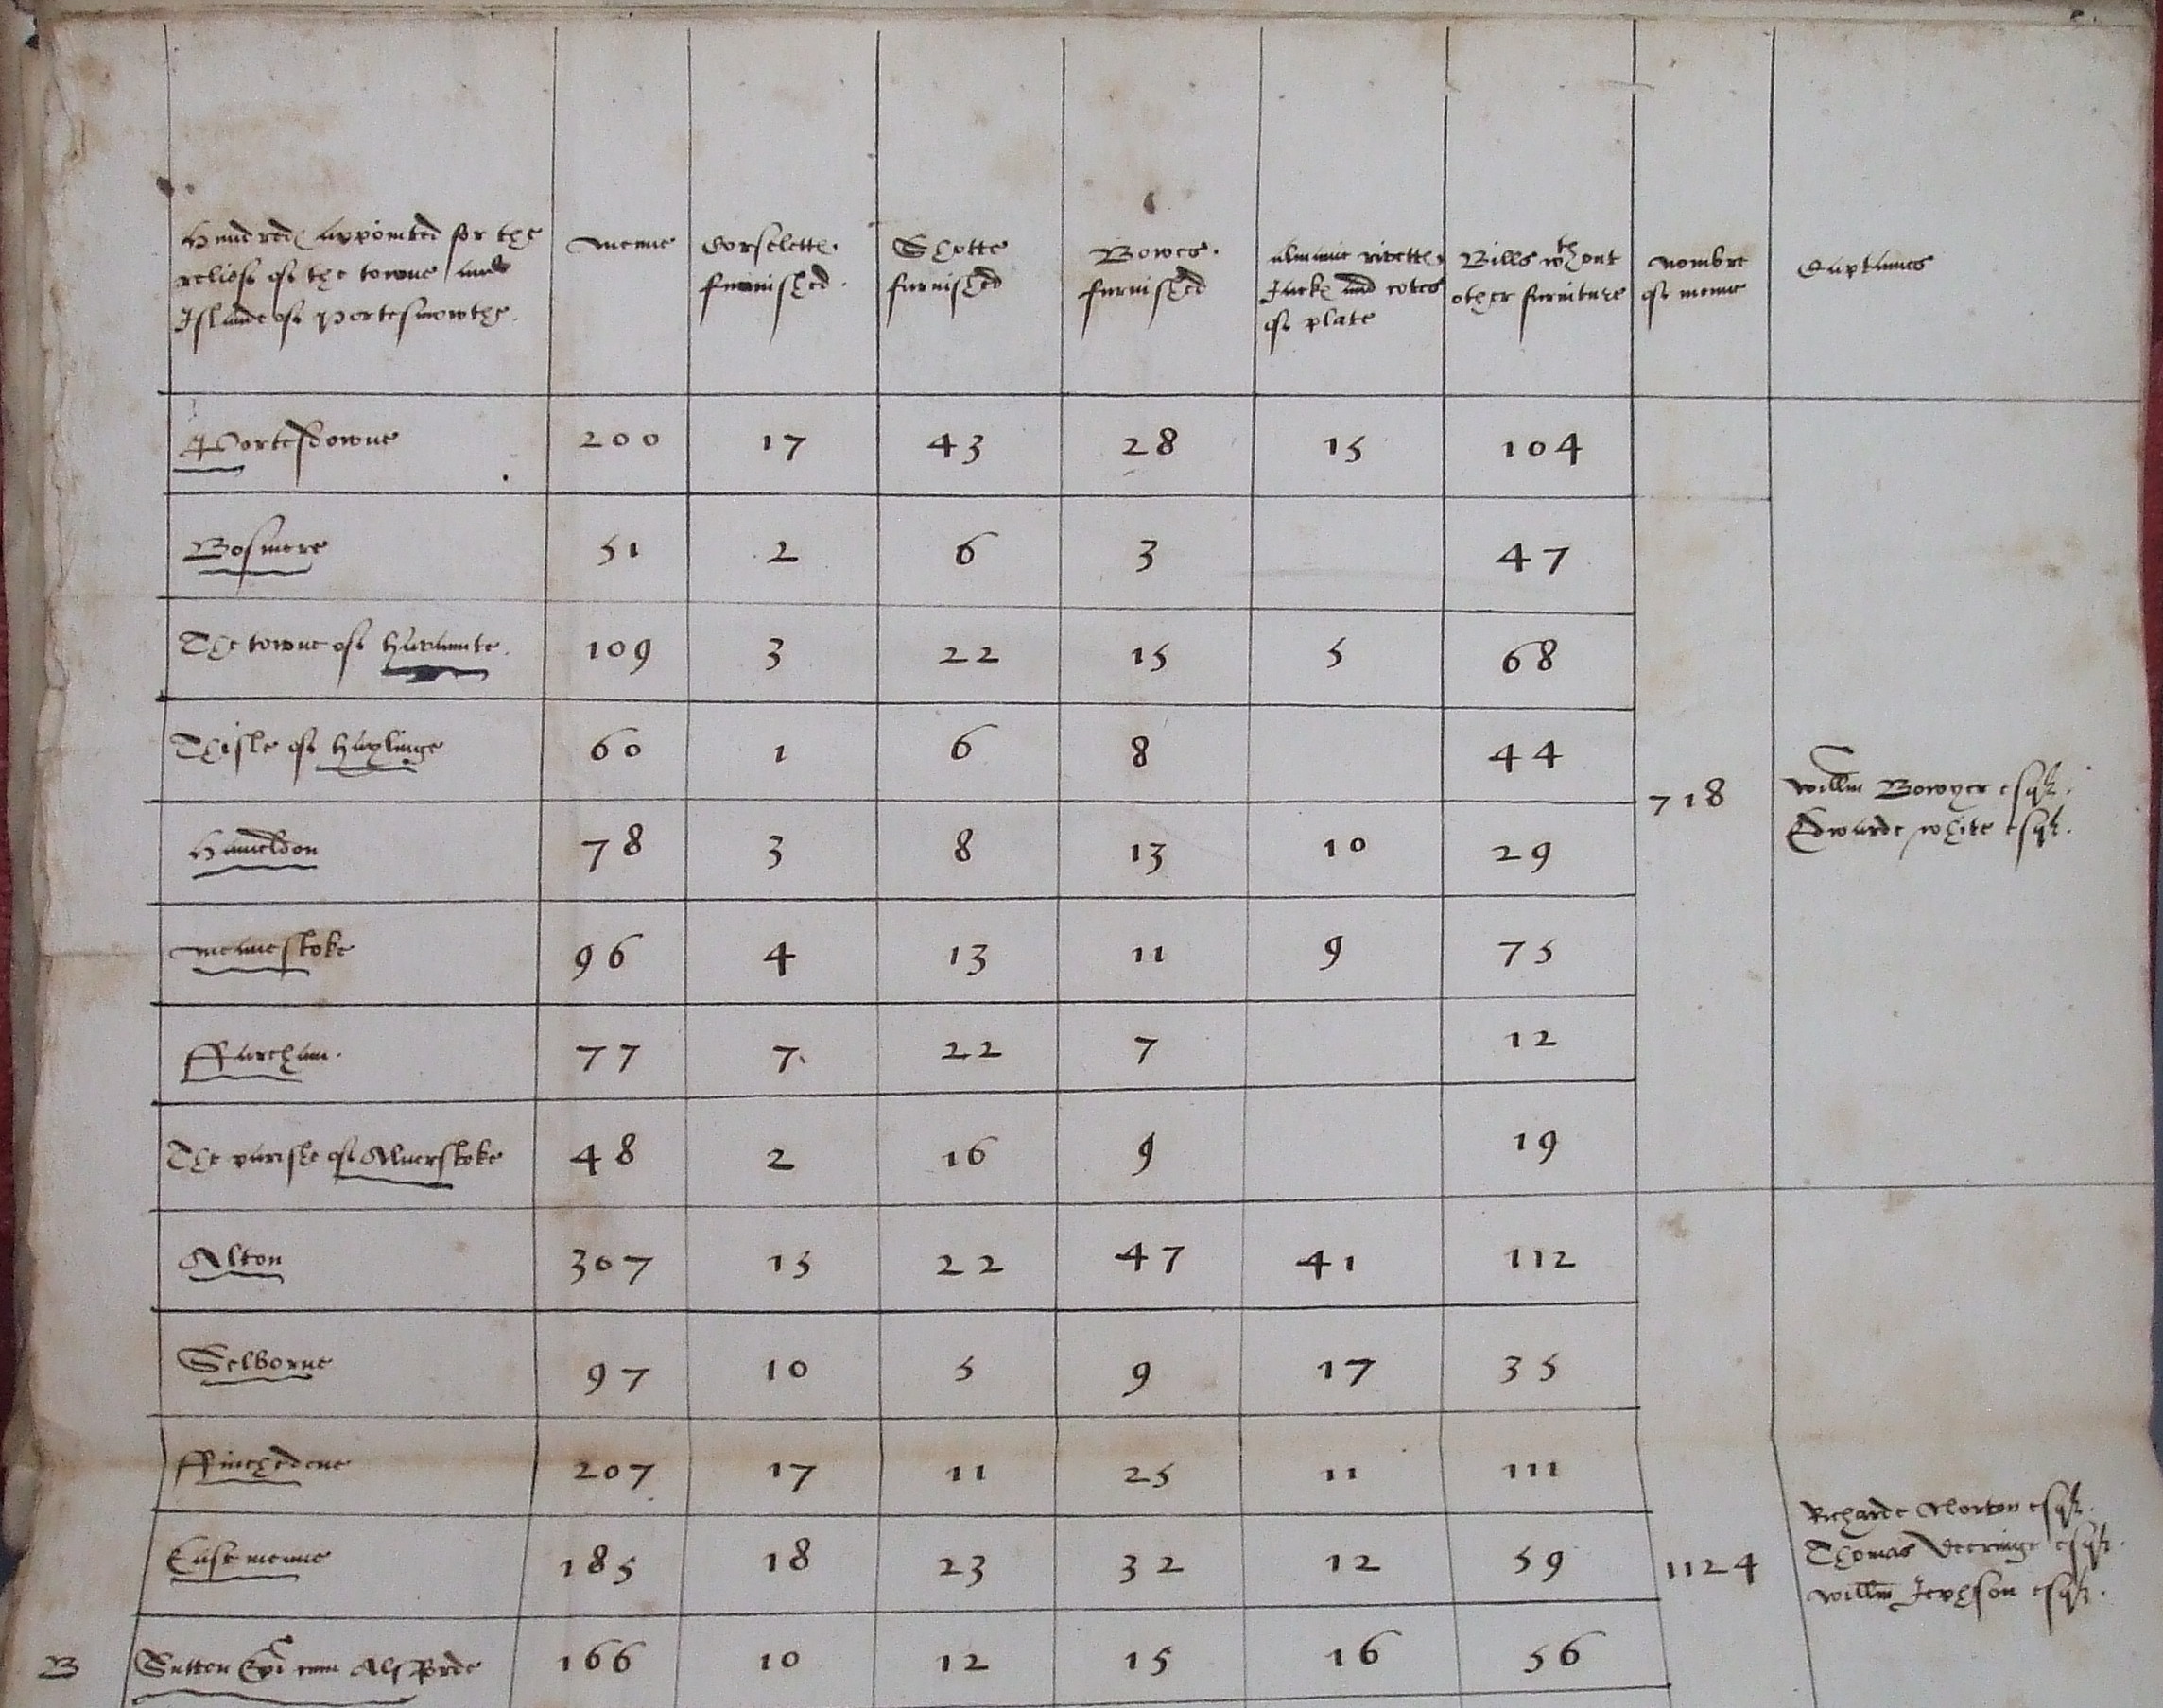 Hundredes appointed for the
relief of the towne and
Islande of Portesmowthe.
menne
Corselette.
furnished.
Shotte
furnished
Bowes.
furnished
almaine rivette,
Jacke and cotes
of plate
Bills wthout
other furniture
nombre
of menne
Captaines
Portesdowne 200 17 43 28 15 104
Bosmere 51 2 6 3 47
The towne of Havannte. 109 3 22 15 5 68
Thisle of Haylinge 60 1 6 8 44
718
Willm Bowyer esqr.
Edwarde White esqr.
Hameldon 78 3 8 13 10 29
Menestoke 96 4 13 11 9 75
ffareham. 77 7 22 7 12
The parishe of Alverstoke 48 2 16 9 19
Alton 307 15 22 47 41 112
Selborne 97 10 5 9 17 35
ffinchedene 207 17 11 25 11 111
Estmenne 185 18 23 32 12 59
1124
Richarde Norton esqr.
Thomas Deeringe esqr.
Willm Jephson esqr.
B Sutton Epi cum Alsforde 166 10 12 15 16 56